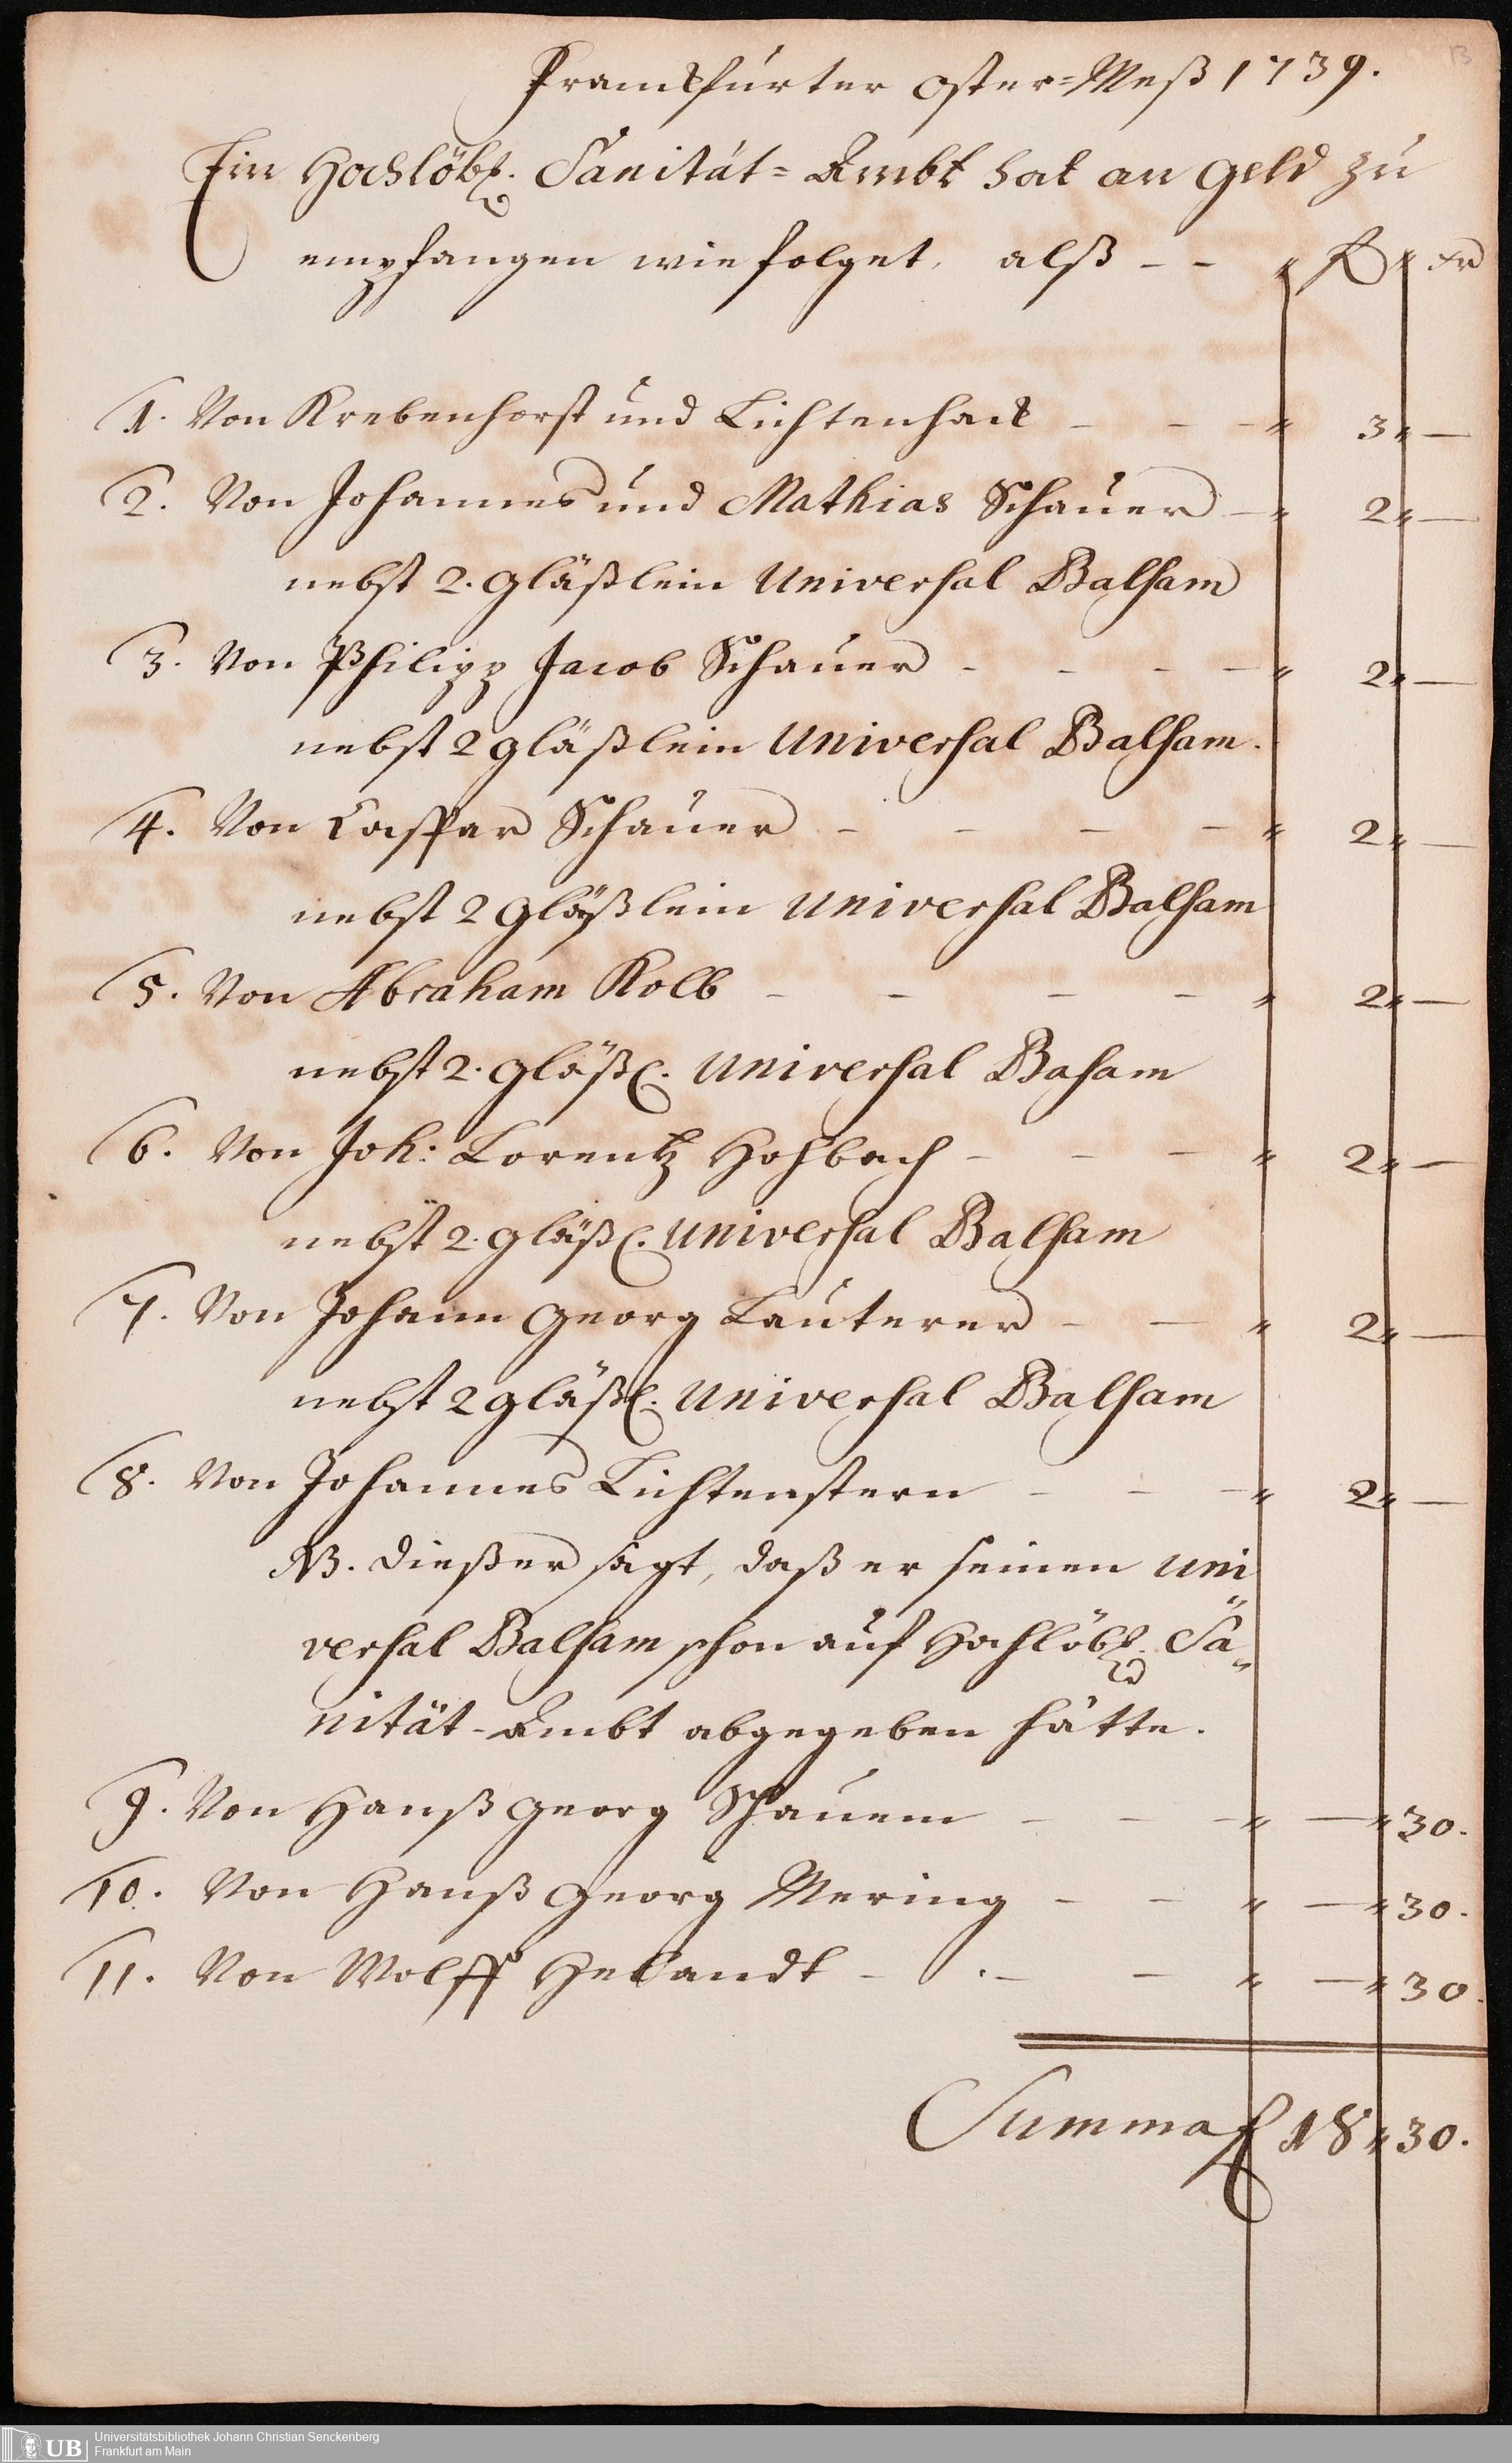 Franckfurter Oster=Meß 1739.
Ein Hochlöbl. Sanität=Ambt hat an Geld zu
empfangen wie folget, alß - - " fl " xr
1. Von Krebenhorst und Lichtenhack - - - " 3 " —
2. Von Johannes und Mathias Schauer - " 2 " —
nebst 2. Gläßlein Universal Balsam
3. Von Philipp Jacob Schauer - - - - " 2 " —
nebst 2 Gläßlein Universal Balsam.
4. Von Casspar Schauer - - - - " 2 " —
nebst 2 Gläßlein Universal Balsam
5. Von Abraham Kolb - - - - " 2 " —
nebst 2. Gläßl. Universal Basam
6. Von Joh: Lorentz Hohbach - - - " 2 " —
nebst 2. Gläßl. Universal Balsam
7. Von Johann Georg Lauterer - - " 2 " —
nebst 2 Gläßl. Universal Balsam
8. Von Johannes Lichtenstern - - - " 2 " —
NB. Dießer sagt, daß er seinen Uni"
versal Balsam schon auf Hochlöbl. Sa"
nität-Ambt abgegeben hätte.
9. Von Hanß Georg Schauem - - - " — " 30.
10. Von Hanß Georg Mering - - " — " 30.
11. Von Wolff Helandt - - - " — " 30.
Summa fl 18 " 30.
UB Universitätsbibliothek Johann Christian Senckenberg
Frankfurt am Main